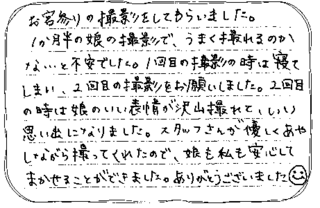 お宮参りの撮影をしてもらいました。
1か月半の娘の撮影で、うまく撮れるのか
なぁと不安でした。1回目の撮影の時は寝て
しまい、2回目の撮影をお願いしました。2回目
の時は娘のいい表情が沢山撮れて、いい
思い出になりました。スタッフさんが優しくあや
しながら撮ってくれたので、娘も私も安心して
まかせることができました。ありがとうございました